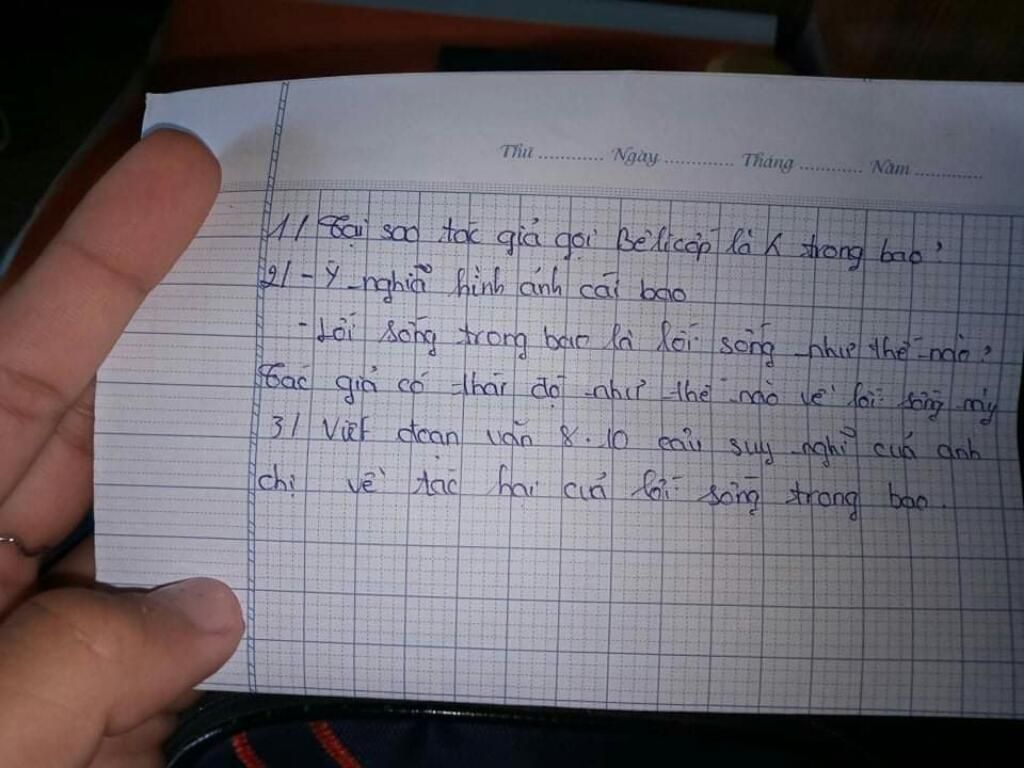 Thứ ............ Ngày ............ Tháng ............ Năm ............
1/ Tại sao tác giả gọi Bêlicốp là K trong bao?
2/ - Ý nghĩa hình ảnh cái bao
- Lối sống trong bao là lối sống như thế nào?
Tác giả có thái độ như thế nào về lối sống này
3/ Viết đoạn văn 8-10 câu suy nghĩ của anh
chị về tác hại của lối sống trong bao.